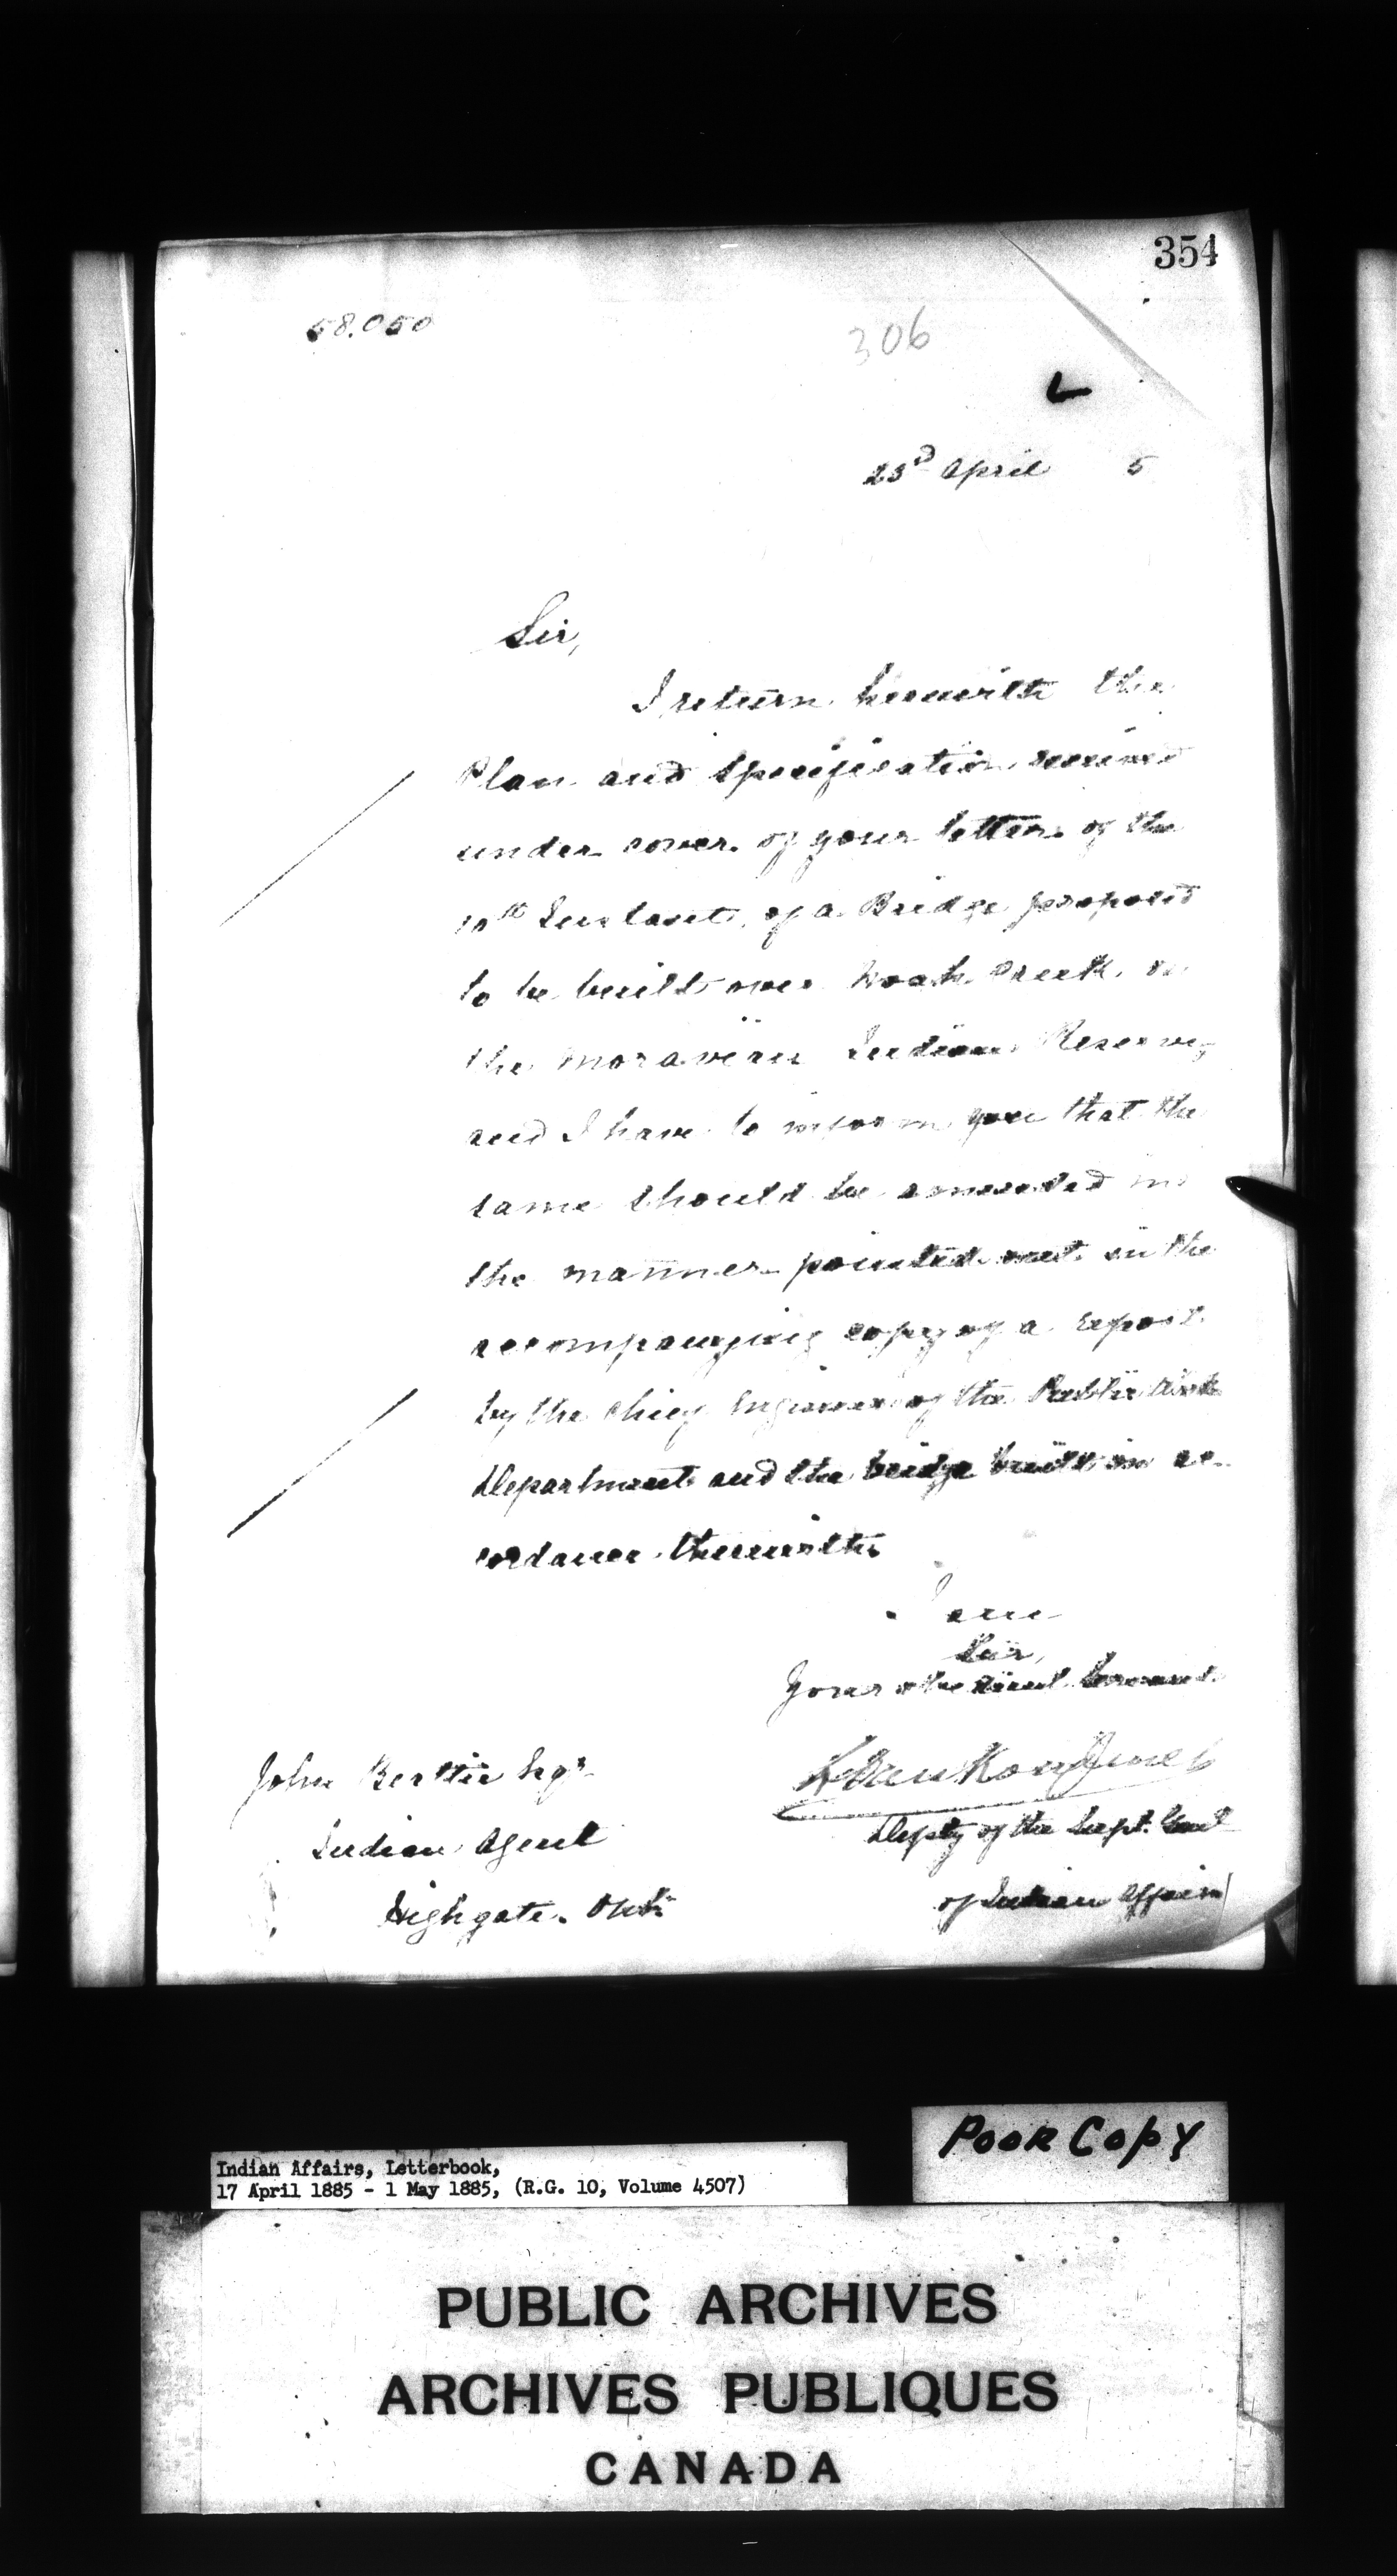 354
58.050
306
23rd April 5
Sir,
I return herewith the
Plan and Specification received
under cover of your letter of the
10th Instant, of a Bridge proposed
to be built over Creek on
the Moravian Indian Reserve,
and I have to inform you that the
same should be amended in
the manner pointed out in the
accompanying copy of a report
by the Chief Engineer of the Public Works
Department and the bridge built in ac-
cordance therewith.
I am
Sir,
Your obedient Servant
L. VanKoughnet
Deputy of the Supt. Genl
of Indian Affairs
John Beattie Esqr
Indian Agent
Highgate. Ont.
POOR COPY
Indian Affairs, Letterbook,
17 April 1885 - 1 May 1885, (R.G. 10, Volume 4507)
PUBLIC ARCHIVES
ARCHIVES PUBLIQUES
CANADA